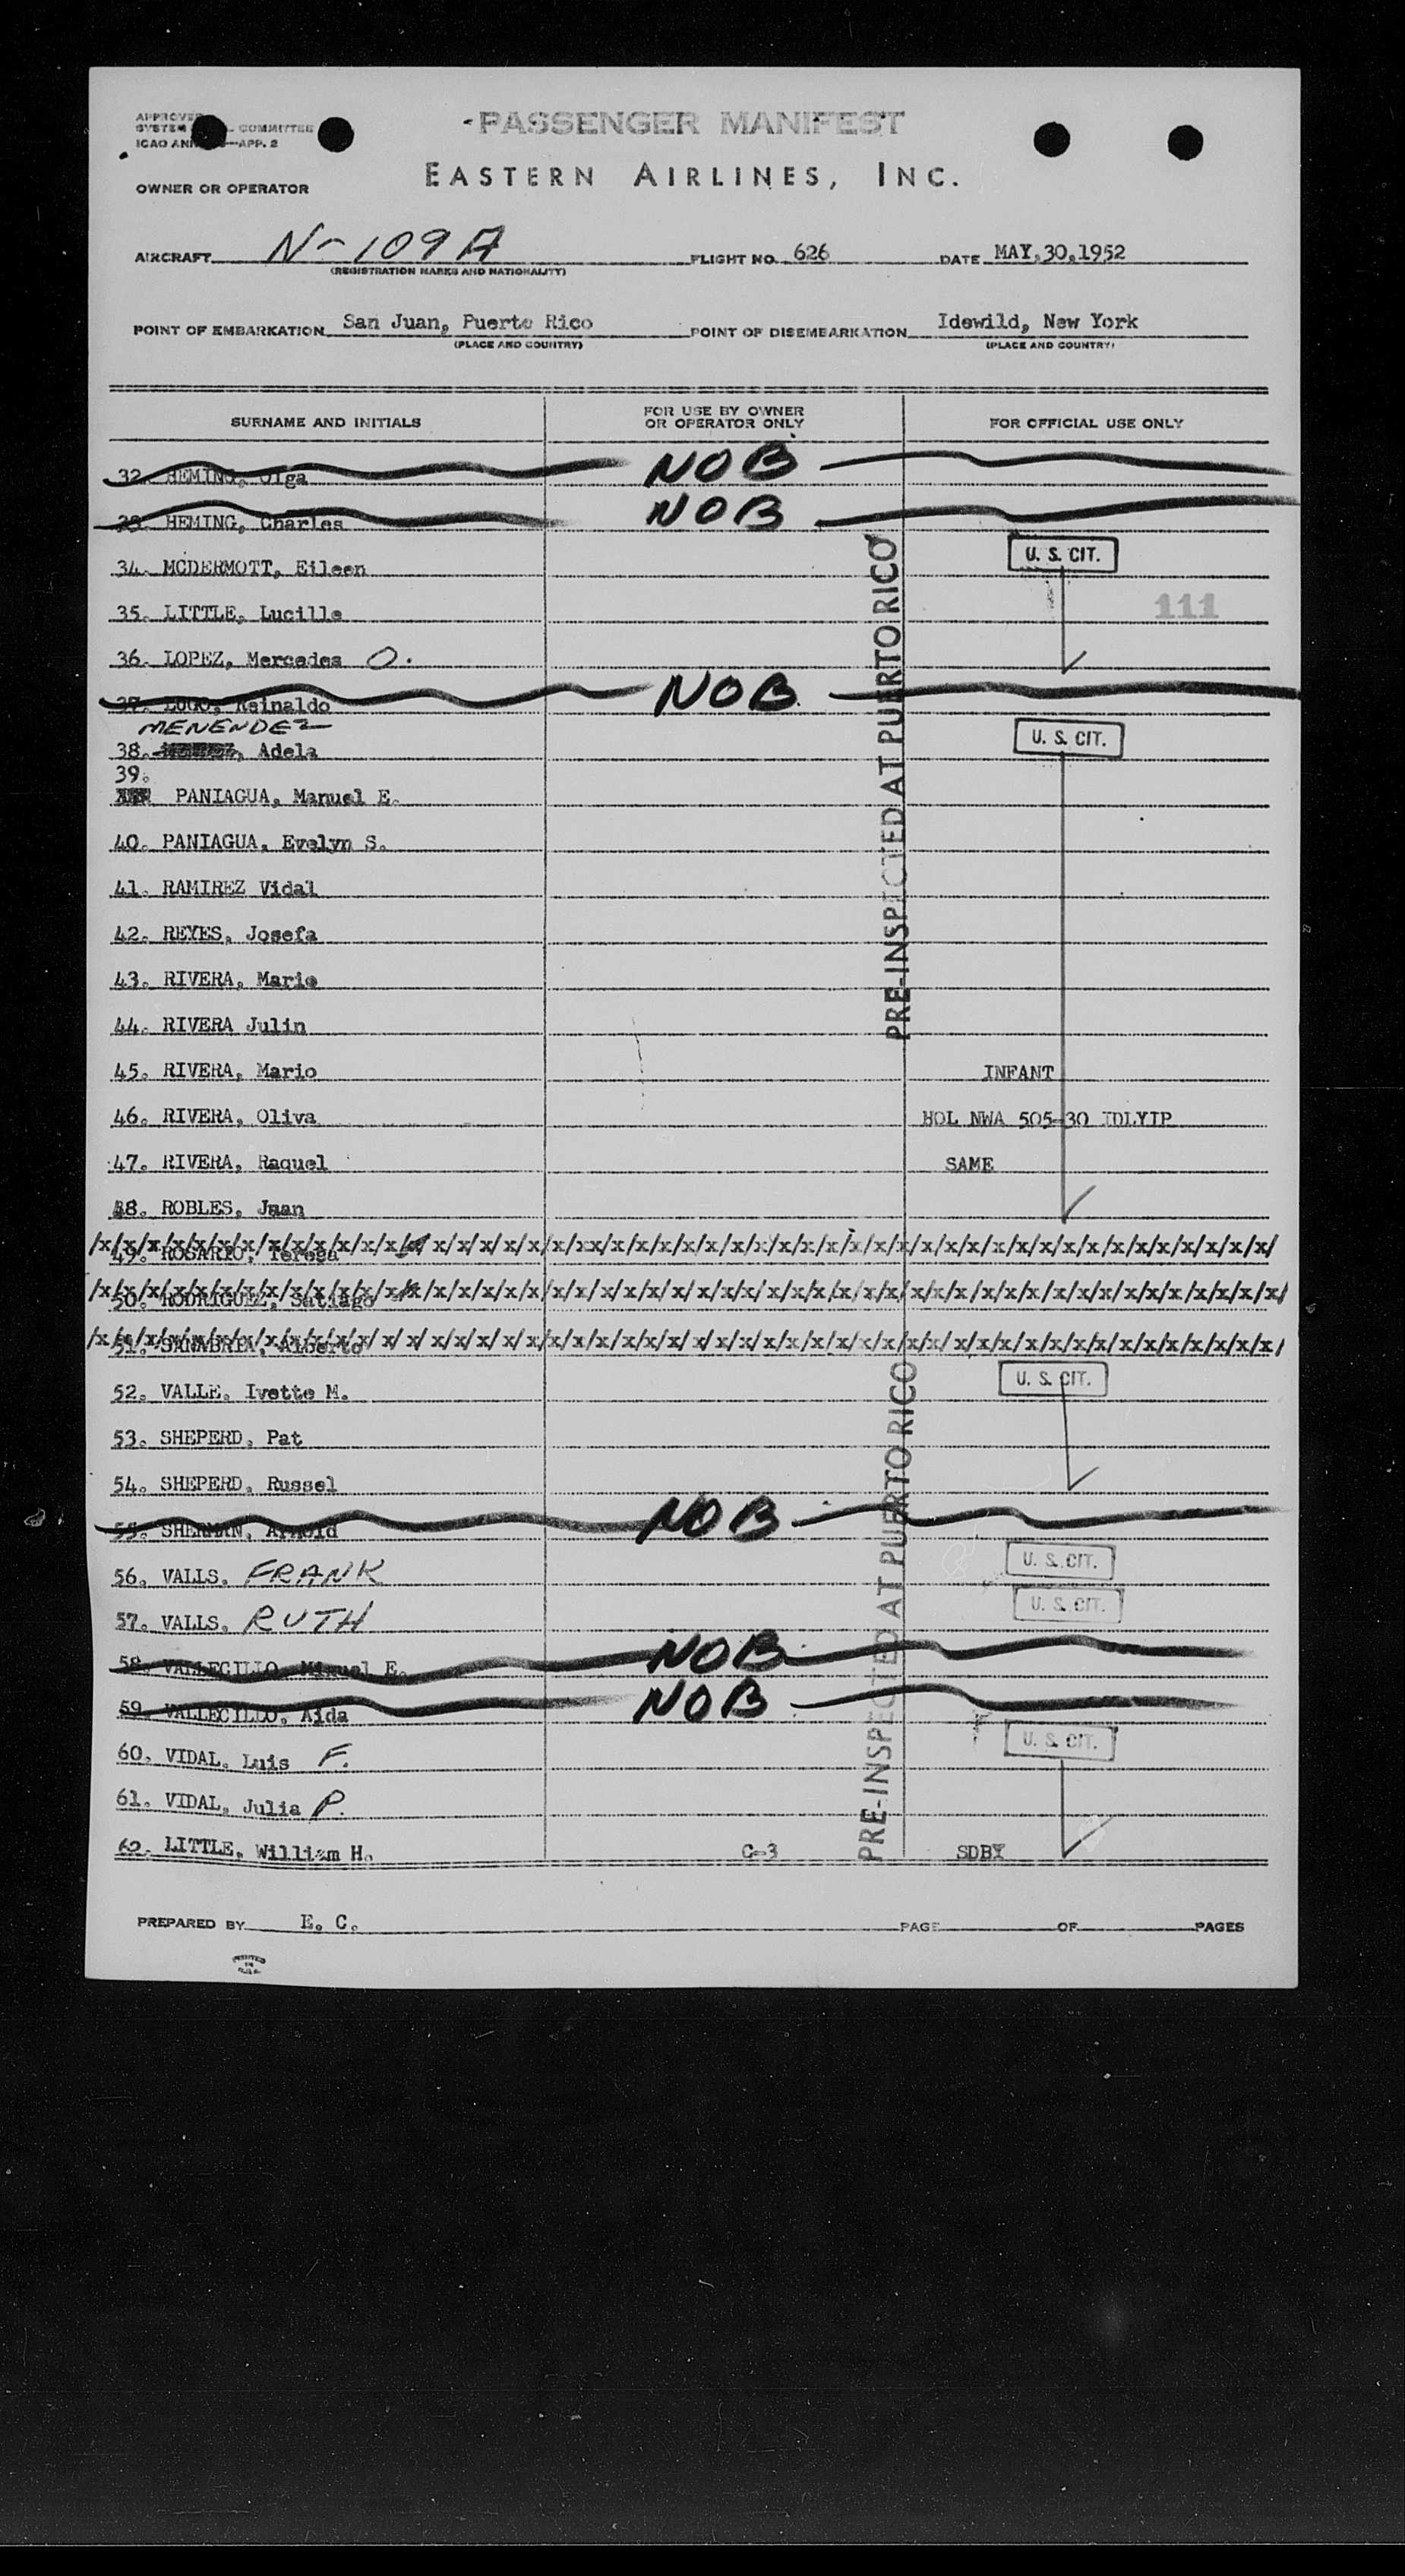 APPROVED
SYSTEM COMMITTEE
ICAO APP. 2
PASSENGER MANIFEST
EASTERN AIRLINES, INC.
OWNER OR OPERATOR
AIRCRAFT N-109A FLIGHT NO. 626 DATE MAY,30,1952
(REGISTRATION MARKS AND NATIONALITY)
POINT OF EMBARKATION San Juan, Puerto Rico POINT OF DISEMBARKATION Idewild, New York
(PLACE AND COUNTRY) (PLACE AND COUNTRY)
SURNAME AND INITIALS FOR USE BY OWNER OR OPERATOR ONLY FOR OFFICIAL USE ONLY
32. HEMING, Olga NOB
33. HEMING, Charles NOB
34. MCDERMOTT, Eileen U. S. CIT.
35. LITTLE, Lucille 111
36. LOPEZ, Mercedes O.
37. LUGO, Reinaldo NOB
MENENDEZ
38. Adela U. S. CIT.
39.
PANIAGUA, Manuel E.
40. PANIAGUA, Evelyn S.
41. RAMIREZ Vidal
42. REYES, Josefa
43. RIVERA, Marie
44. RIVERA Julin
PRE-INSPECTED AT PUERTO RICO
45. RIVERA, Mario INFANT
46. RIVERA, Oliva HOL NWA 505-30 IDLYIP
47. RIVERA, Raquel SAME
48. ROBLES, Juan
49. ROSARIO, Teresa
50. RODRIGUEZ, Satiago
51. SANABRIA, Alberto
52. VALLE, Ivette M. U. S. CIT.
53. SHEPERD, Pat
54. SHEPERD, Russel
55. SHERMAN, Arnold NOB
56. VALLS, FRANK U. S. CIT.
57. VALLS, RUTH U. S. CIT.
58. VALLECILLO, Miguel E. NOB
59. VALLECILLO, Aida NOB
60. VIDAL, Luis F. U. S. CIT.
61. VIDAL, Julia P.
62. LITTLE, William H. C-3 SDBY
PRE-INSPECTED AT PUERTO RICO
PREPARED BY E. C. PAGE OF PAGES